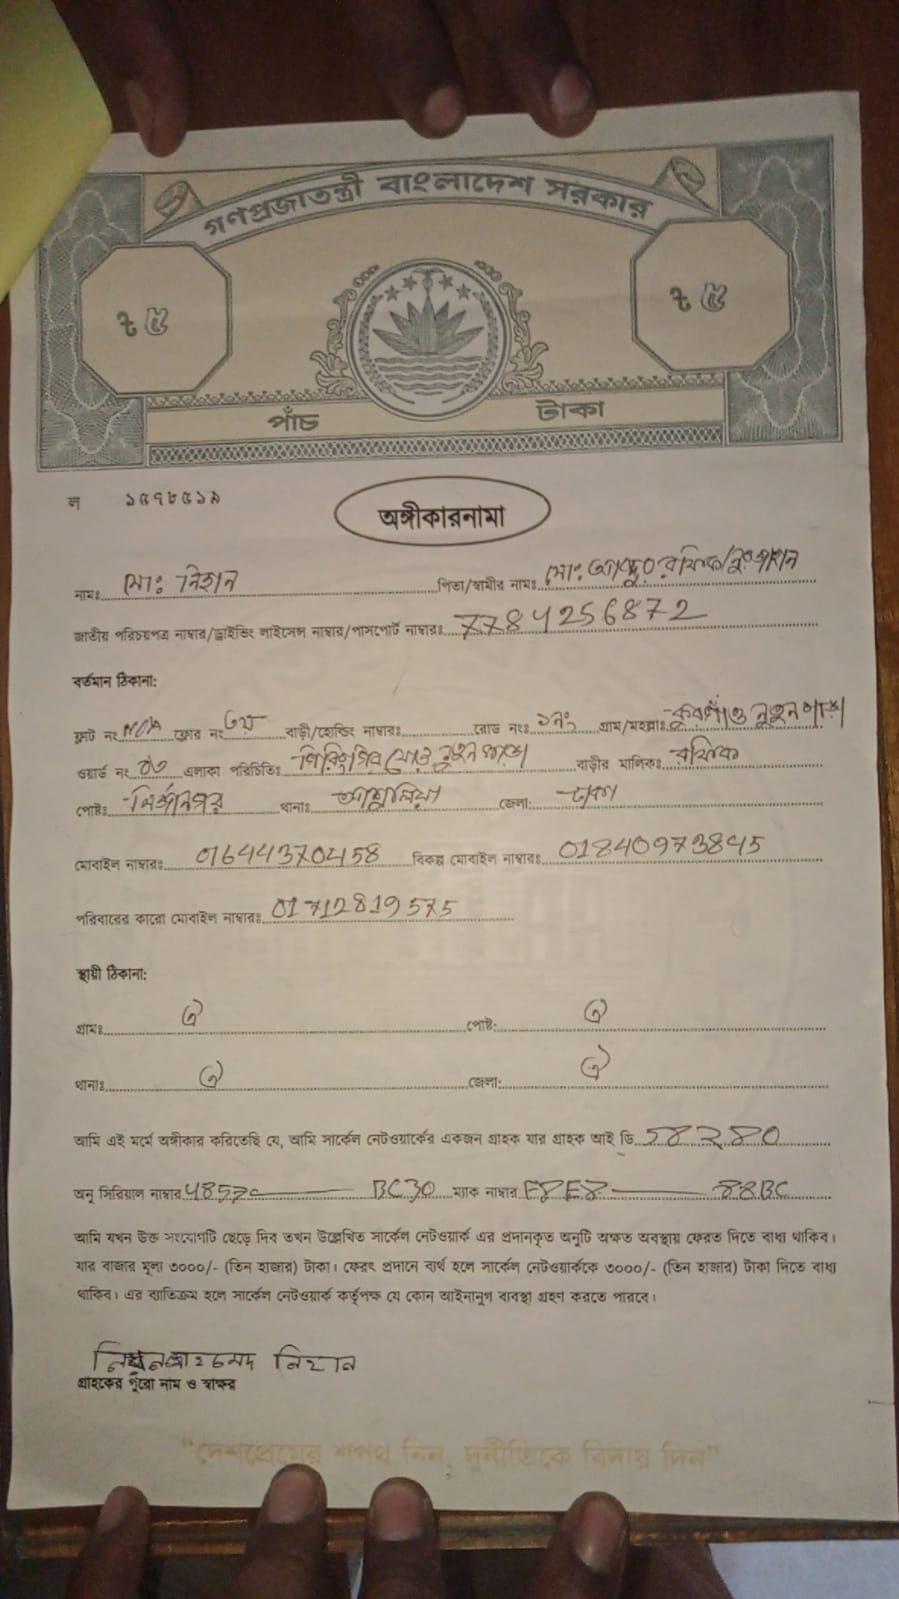 গণপ্রজাতন্ত্রী বাংলাদেশ সরকার
৳ ৫ ৳ ৫
পাঁচ টাকা
ল ১৫৭৮৫১৯
অঙ্গীকারনামা
নামঃ মোঃ নিহান পিতা/স্বামীর নামঃ মোঃ
জাতীয় পরিচয়পত্র নাম্বার/ড্রাইভিং লাইসেন্স নাম্বার/পাসপোর্ট নাম্বারঃ 7784256872
বর্তমান ঠিকানা:
ফ্লাট নং N/A ফ্লোর নং ৩য় বাড়ী/হোল্ডিং নাম্বারঃ রোড নংঃ ১নং গ্রাম/মহল্লাঃ নতুন পাড়া
ওয়ার্ড নং এলাকা পরিচিতিঃ নতুন পাড়া বাড়ীর মালিকঃ রফিক
পোষ্টঃ মির্জানগর থানাঃ আশুলিয়া জেলা: ঢাকা
মোবাইল নাম্বারঃ 01644370458 বিকল্প মোবাইল নাম্বারঃ 01840973845
পরিবারের কারো মোবাইল নাম্বারঃ 01712819575
স্থায়ী ঠিকানা:
গ্রামঃ ঐ পোষ্ট: ঐ
থানাঃ ঐ জেলা: ঐ
আমি এই মর্মে অঙ্গীকার করিতেছি যে, আমি সার্কেল নেটওয়ার্কের একজন গ্রাহক যার গ্রাহক আই ডি 58280
অনু সিরিয়াল নাম্বার BC30 ম্যাক নাম্বার E8E8 88BC
আমি যখন উক্ত সংযোগটি ছেড়ে দিব তখন উল্লেখিত সার্কেল নেটওয়ার্ক এর প্রদানকৃত অনুটি অক্ষত অবস্থায় ফেরত দিতে বাধ্য থাকিব।
যার বাজার মূল্য ৩০০০/- (তিন হাজার) টাকা। ফেরৎ প্রদানে ব্যর্থ হলে সার্কেল নেটওয়ার্ককে ৩০০০/- (তিন হাজার) টাকা দিতে বাধ্য
থাকিব। এর ব্যতিক্রম হলে সার্কেল নেটওয়ার্ক কর্তৃপক্ষ যে কোন আইনানুগ ব্যবস্থা গ্রহণ করতে পারবে।
নিহান
গ্রাহকের পুরো নাম ও স্বাক্ষর
"দেশপ্রেমের শপথ নিন, দুর্নীতিকে বিদায় দিন"